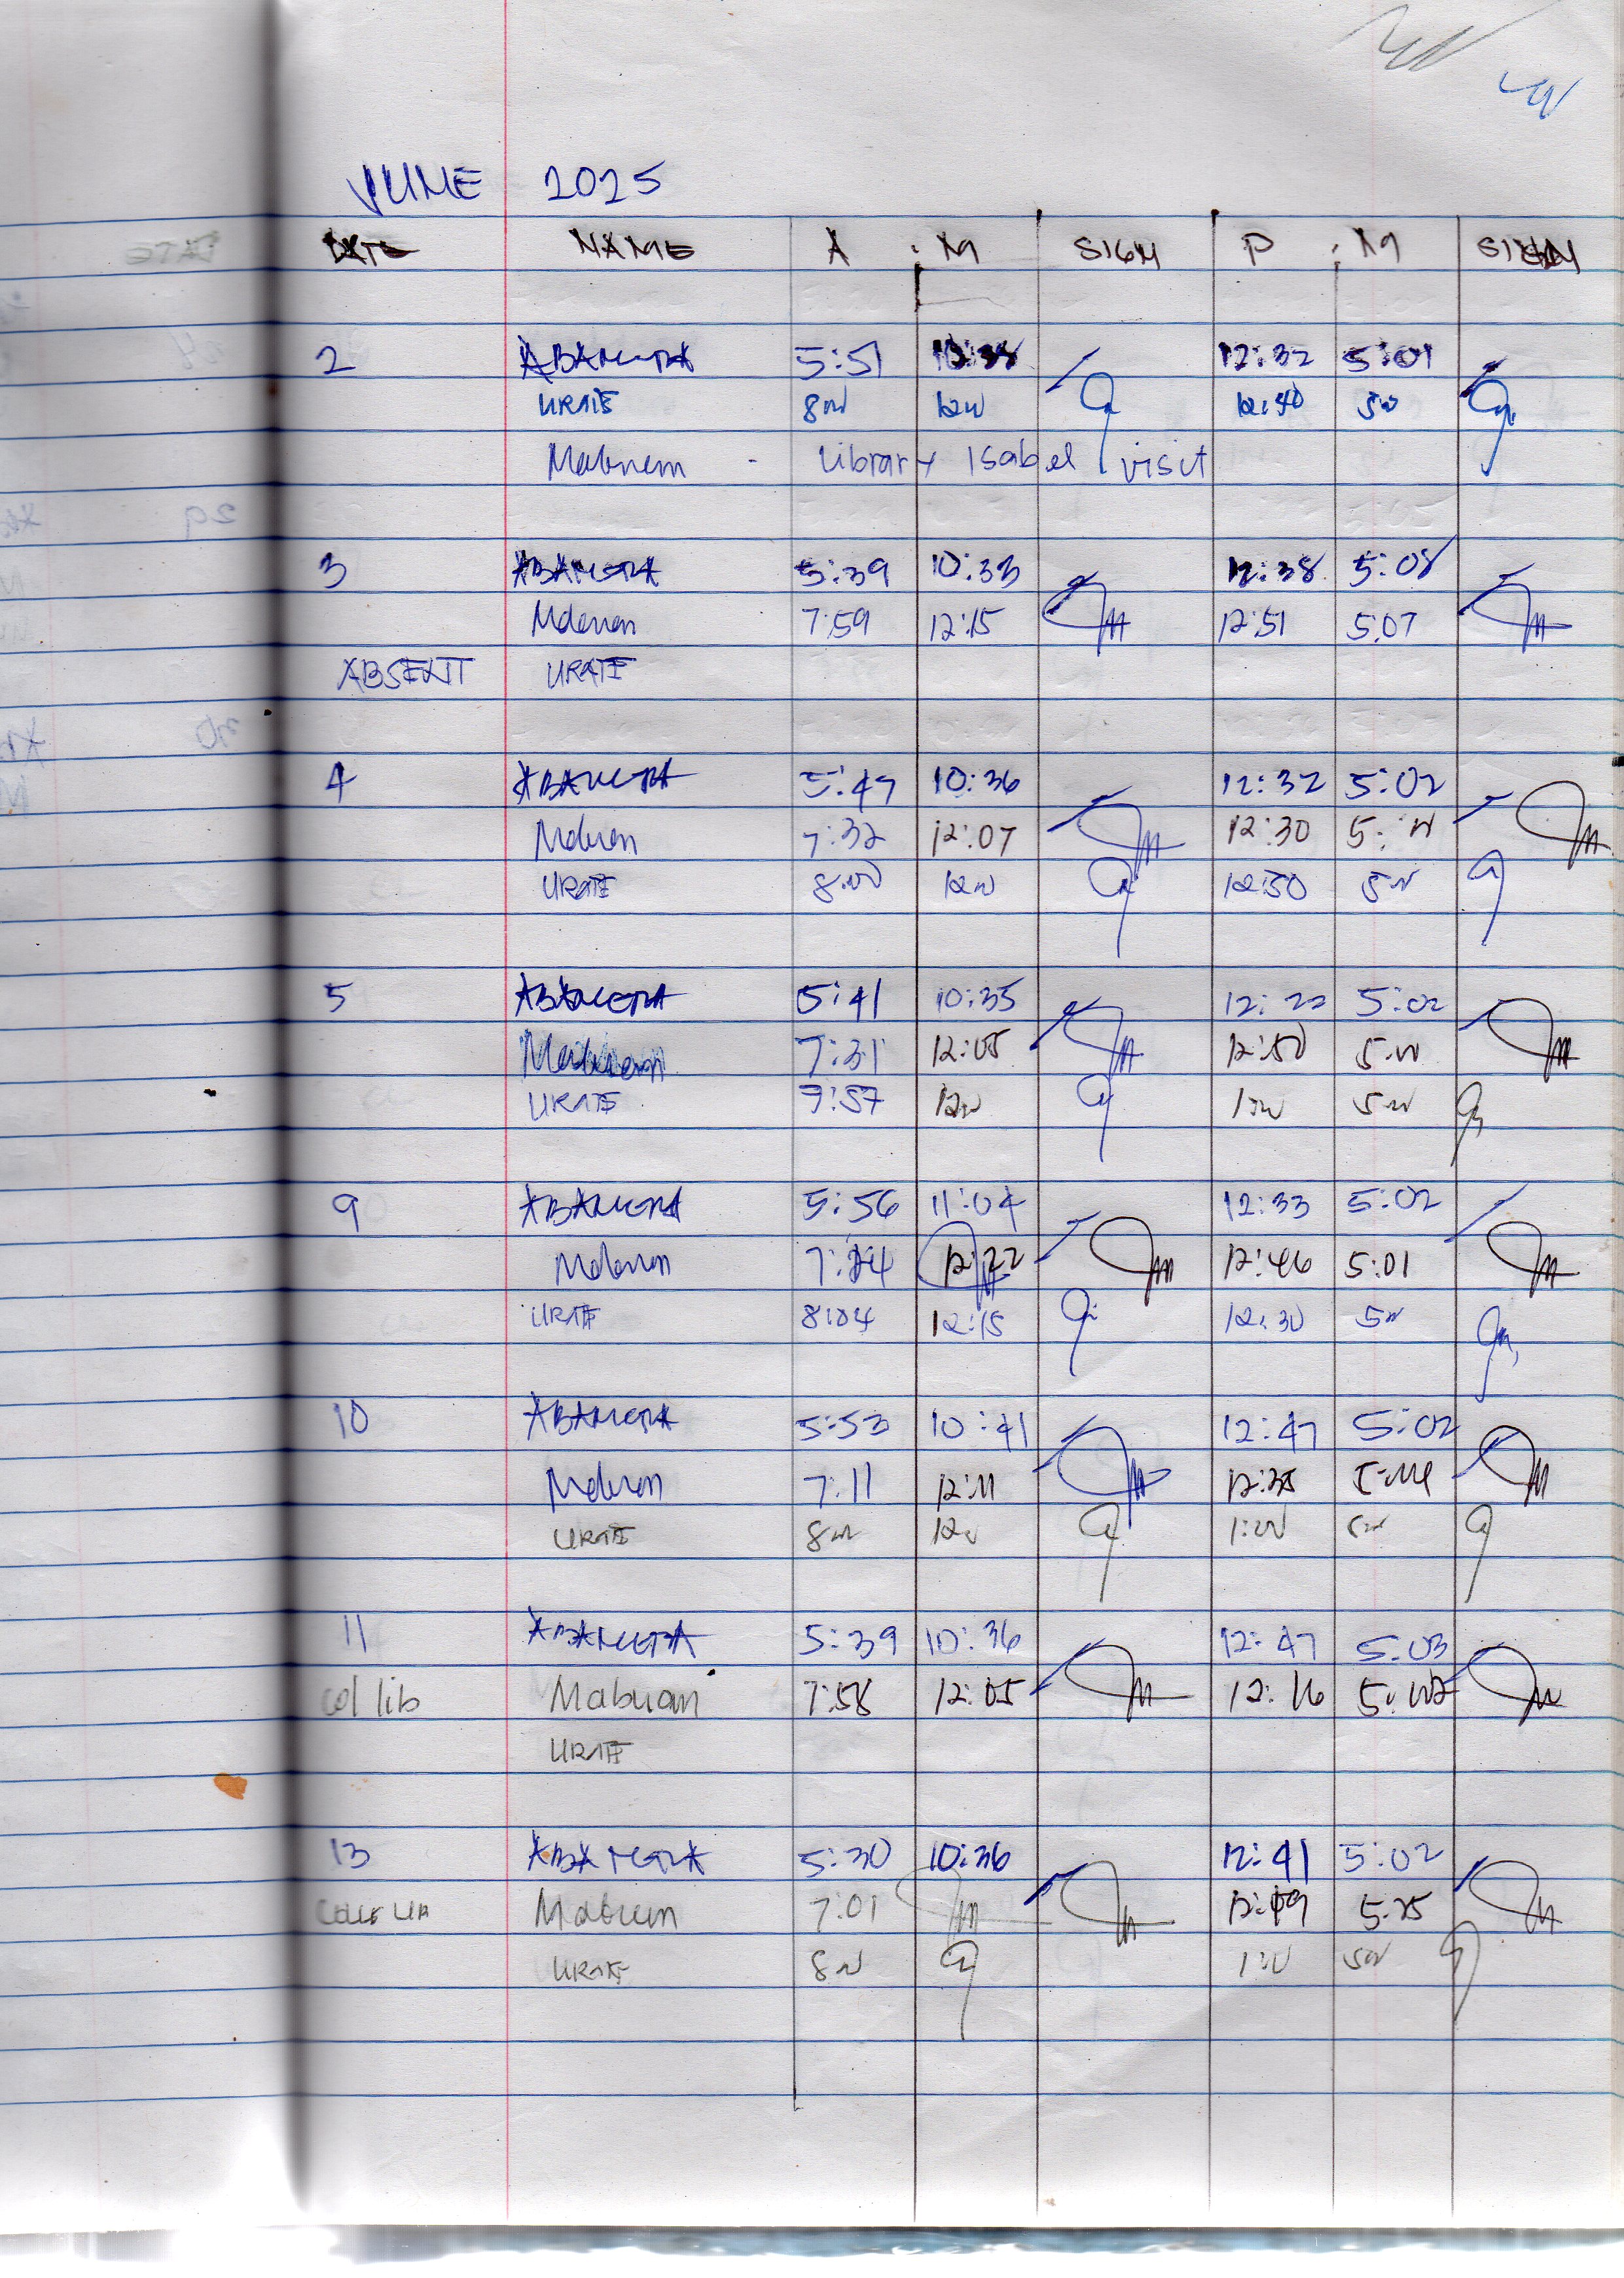 JUNE 2025
DATE NAME A.M SIGN P.M SIGN
2 ABANCTRA 5:51 10:38 12:32 5:01
URATE 8:00 12:00 12:40 5:00
Mabuan - Library Isabel visit
3 ABANCTRA 5:39 10:33 12:38 5:08
Mabuan 7:59 12:15 12:51 5:07
ABSENT URATE
4 ABANCTRA 5:47 10:36 12:32 5:02
Mabuan 7:32 12:07 12:30
URATE 8:00 12:00 12:50 5:00
5 ABANCTRA 5:41 10:35 12:22 5:02
Mabuan 7:31 12:05 12:50 5:00
URATE 7:57 12:00 1:00 5:00
9 ABANCTRA 5:56 11:04 12:33 5:02
Mabuan 12:22 12:46 5:01
URATE 8:04 12:15 12:30 5:00
10 ABANCTRA 5:53 10:41 12:47 5:02
Mabuan 7:11 12:11
URATE 8:00 12:00 1:00 5:00
11 ABANCTRA 5:39 10:36 12:47 5:03
col lib Mabuan 7:58 12:05 12:16
URATE
13 ABANCTRA 5:30 10:36 12:41 5:02
Mabuan 7:01 12:49 5:25
URATE 8:00 1:00 5:00